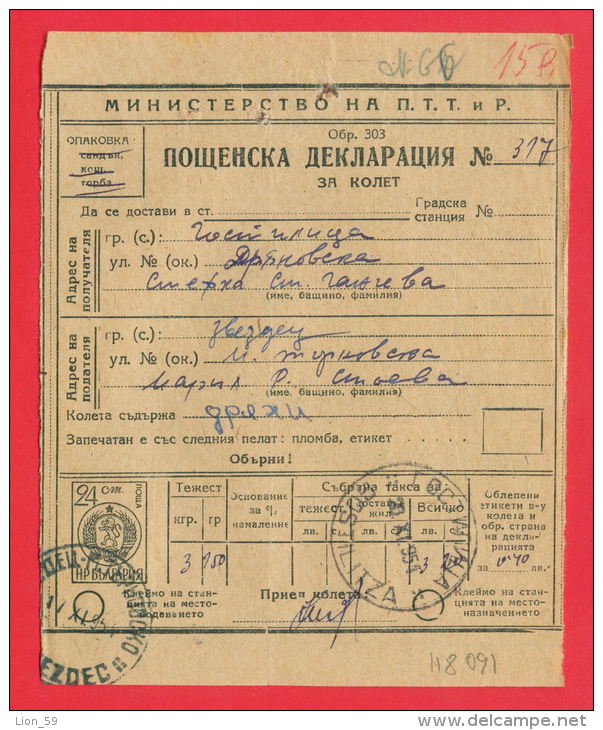 15
МИНИСТЕРСТВО НА П.Т.Т. и Р.
ОПАКОВКА
сандък,
кош,
торба
Обр. 303
ПОЩЕНСКА ДЕКЛАРАЦИЯ № 317
ЗА КОЛЕТ
Да се достави в ст. Градска станция №
Адрес на получателя
гр. (с.): Гостилица
ул. № (ок.) Дряновска
Ст. Ганчева
(име, бащино, фамилия)
Адрес на подателя
гр. (с.): Звездец
ул. № (ок.) М. търновска
Мария Р. Стоева
(име, бащино, фамилия)
Колета съдържа дрехи
Запечатан е със следния пелат: пломба, етикет
Обърни!
24 ст.
ПОЩА
НР БЪЛГАРИЯ
Тежест
кгр. гр
3 150
Основание за % намаление
Събрана такса за
тежест
лв.
лв.
Всичко
лв.
Облепени етикети в-у колета и обр. страна на декларацията за лв.
Клеймо на станцията на местоподаването
Приел колета:
Клеймо на станцията на местоназначението
GOSTILITZA
XI.951
EZDEC
118 091
Lion_59
http://www.delcampe.net